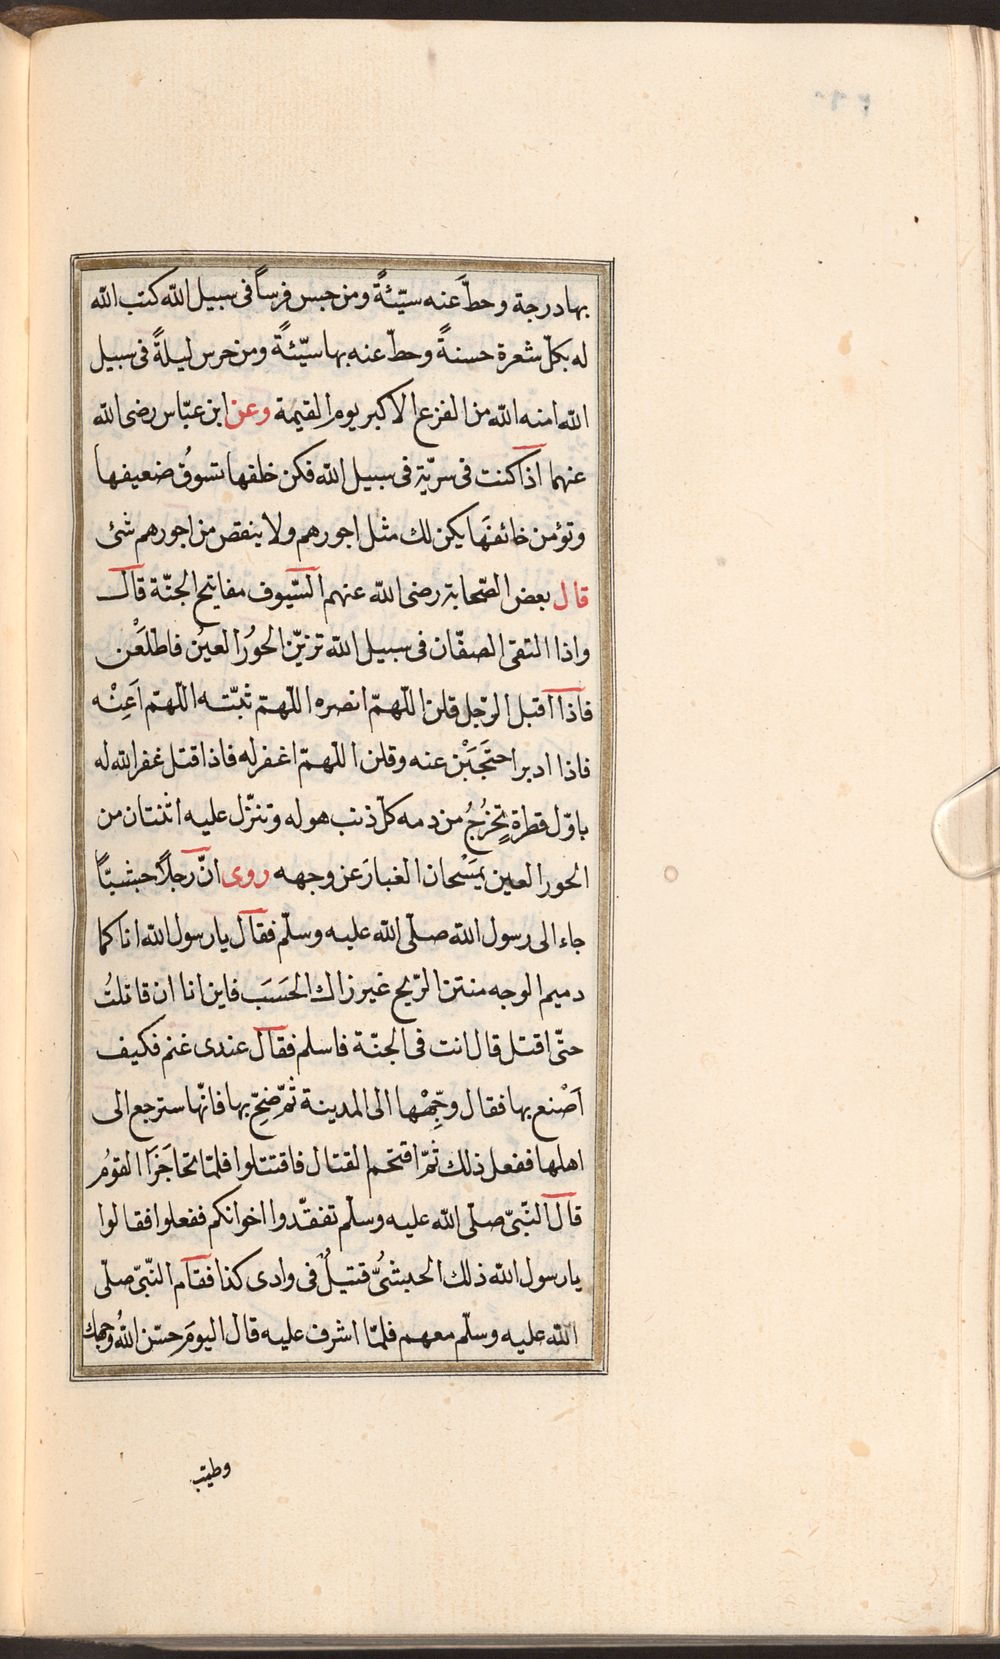 بها درجة وحطَّ عنه سيّئةً ومن حبس فرساً فى سبيل الله كتب الله
له بكلّ شعرة حسنةً وحطّ عنه بها سيّئةً ومن حرس ليلةً فى سبيل
الله امنه الله من الفزع الاكبر يوم القيمة وعن ابن عبّاس رضى الله
عنهما اذا كنت فى سريّة فى سبيل الله فكن خلفها تسوقُ ضعيفها
وتؤمن خائفَها يكن لك مثل اجورهم ولا ينقص من اجورهم شئ
قال بعض الصّحابة رضى الله عنهم السّيوف مفاتيح الجنّة قال
واذا التقى الصفّان فى سبيل الله تزيّن الحورُ العينُ فاطّلَعْن
فاذا اقبل الرّجل قلن اللّهمّ انصره اللّهمّ ثبّته اللّهمّ اَعِنْه
فاذا ادبر احتَجَبْن عنه وقلن اللّهمّ اغفر له فاذا قتل غفر الله له
باوّل قطرةٍ تخرُجُ من دمه كلّ ذنب هو له وتنزّل عليه اثنتان من
الحور العين يَمْسَحان الغبارَ عن وجهه روى انّ رجلاً حبشيّاً
جاء الى رسول الله صلّى الله عليه وسلّم فقال يا رسول الله انا كما
دميم الوجه منتن الرّيح غير زاك الحَسَب فاين انا ان قاتلتُ
حتّى اقتل قال انت فى الجنّة فاسلم فقال عندى غنم فكيف
اَصْنع بها فقال وجِّهْها الى المدينة ثمّ ضحّ بها فانّها سترجع الى
اهلها ففعل ذلك ثمّ اقتحم القتال فاقتتلوا فلمّا تحاجَزَا القومُ
قال النّبىّ صلّى الله عليه وسلّم تفقّدوا اخوانكم ففعلوا فقالوا
يا رسول الله ذلك الحبشىُّ قتيلٌ فى وادى كذا فقام النّبىّ صلّى
الله عليه وسلّم معهم فلمّا اشرف عليه قال اليومَ حسّن اللهُ وجهك
وطيّب